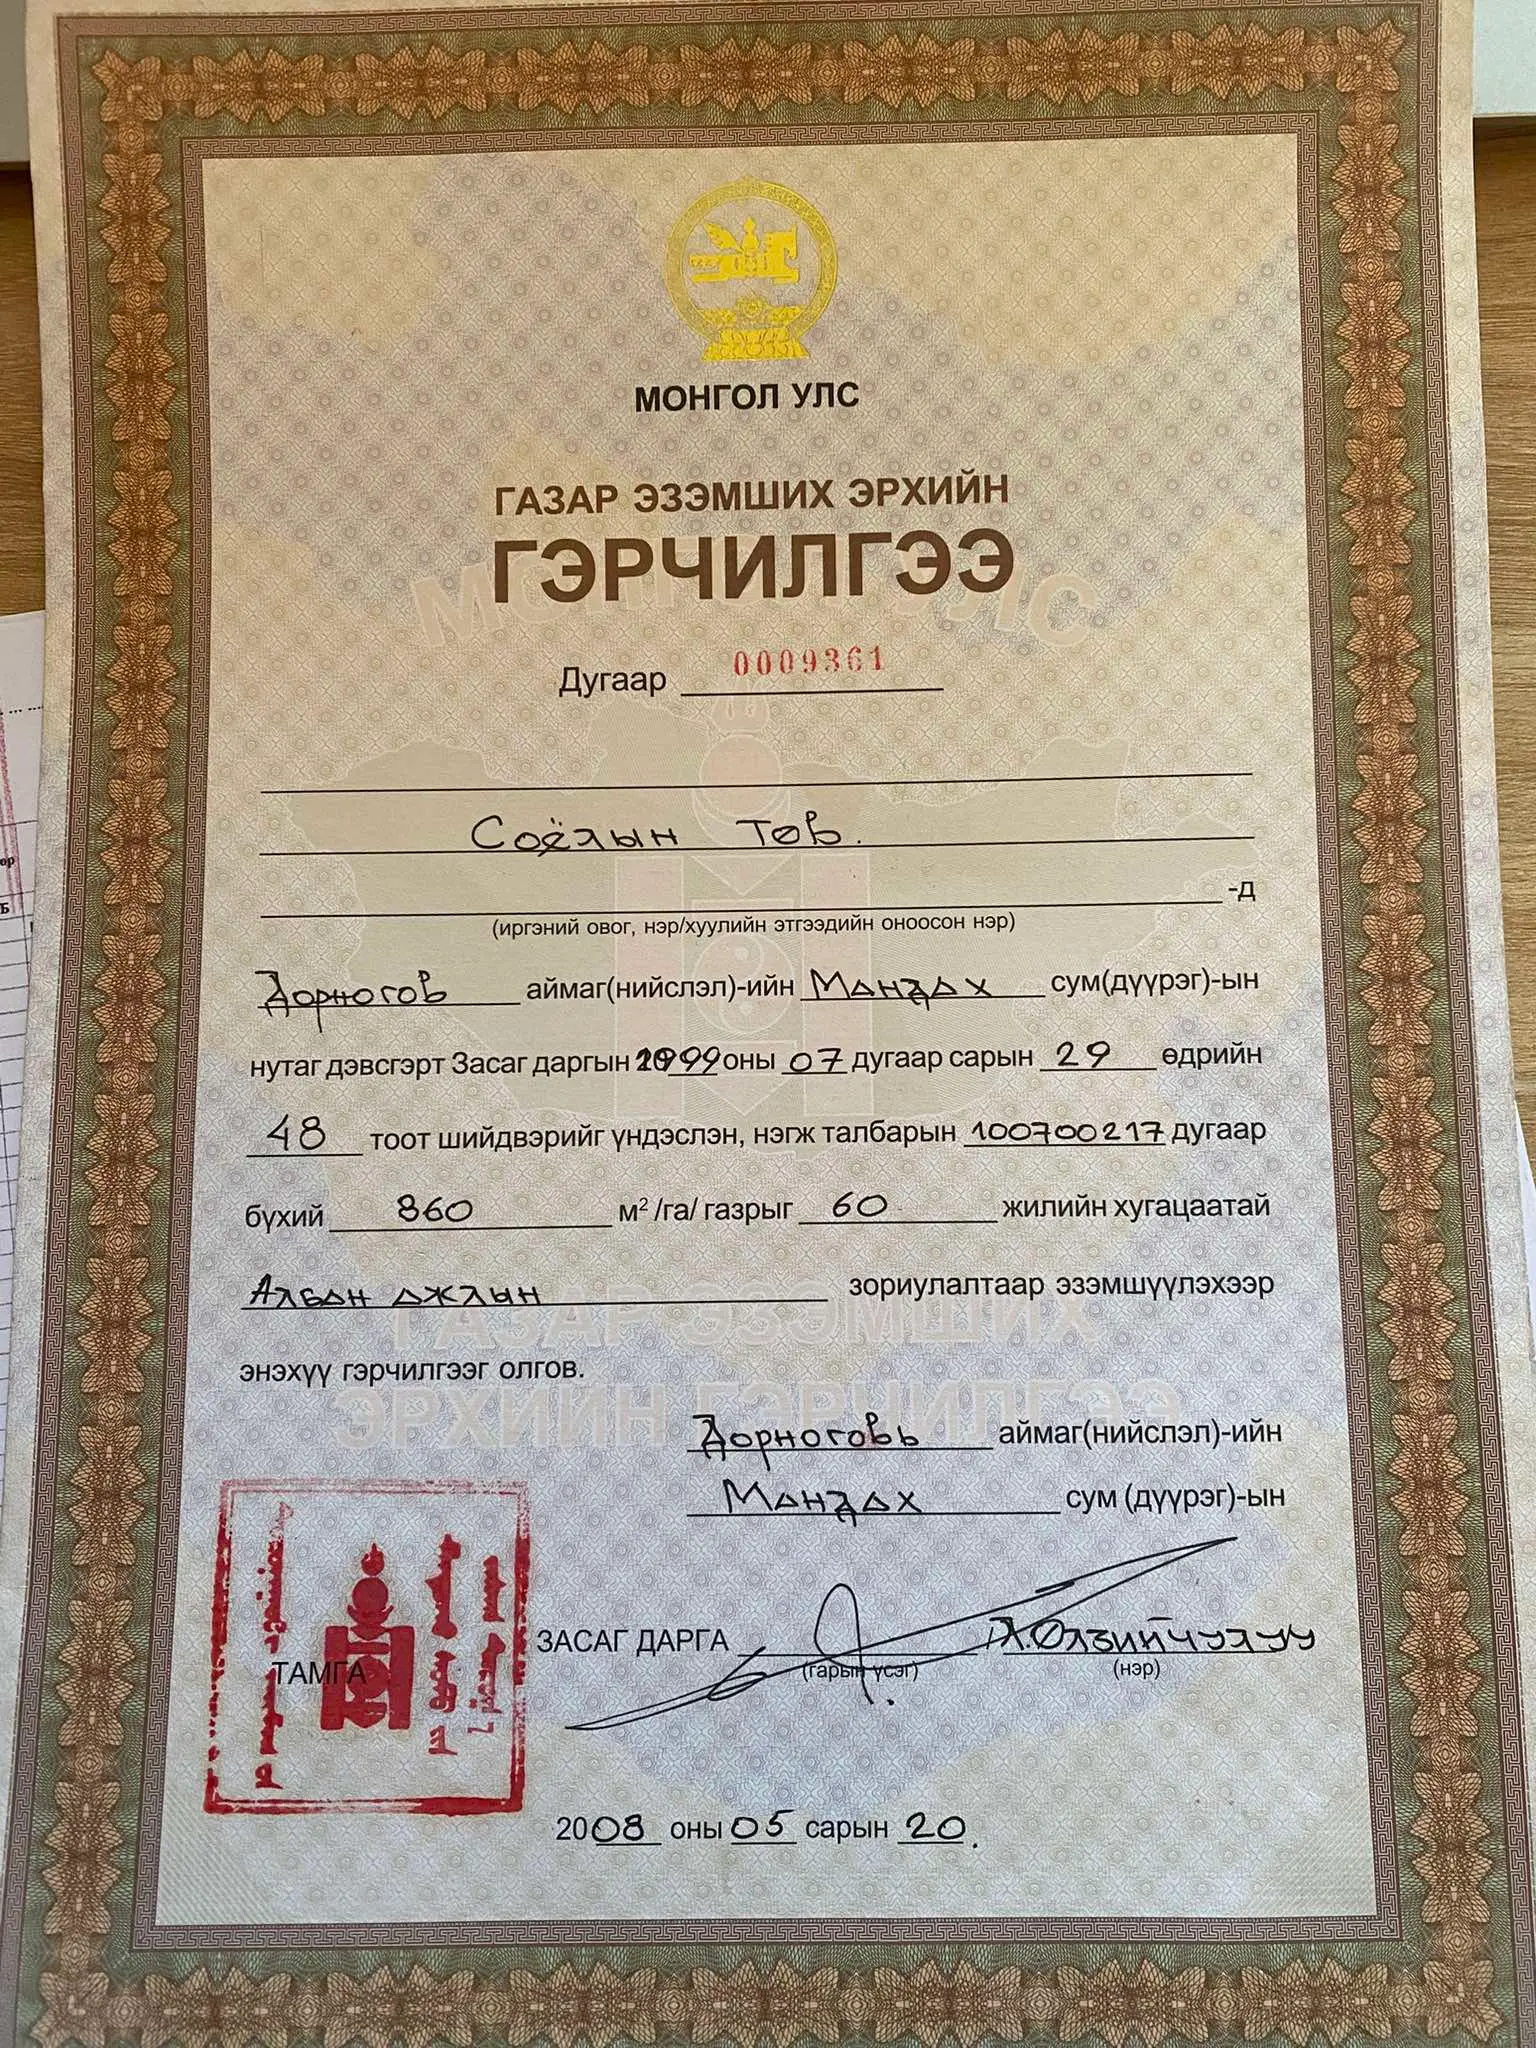 МОНГОЛ УЛС
ГАЗАР ЭЗЭМШИХ ЭРХИЙН
ГЭРЧИЛГЭЭ
Дугаар 0009361
Соёлын төв.
-д
(иргэний овог, нэр/хуулийн этгээдийн оноосон нэр)
Дорногов аймаг(нийслэл)-ийн Мандах сум(дүүрэг)-ын
нутаг дэвсгэрт Засаг даргын 1999 оны 07 дугаар сарын 29 өдрийн
48 тоот шийдвэрийг үндэслэн, нэгж талбарын 100700217 дугаар
бүхий 860 м² /га/ газрыг 60 жилийн хугацаатай
Албан ажлын зориулалтаар эзэмшүүлэхээр
энэхүү гэрчилгээг олгов.
Дорноговь аймаг(нийслэл)-ийн
Мандах сум (дүүрэг)-ын
ЗАСАГ ДАРГА Л.Өлзийчулуу
ТАМГА (гарын үсэг) (нэр)
2008 оны 05 сарын 20.
МОНГОЛ УЛС
ГАЗАР ЭЗЭМШИХ
ЭРХИЙН ГЭРЧИЛГЭЭ